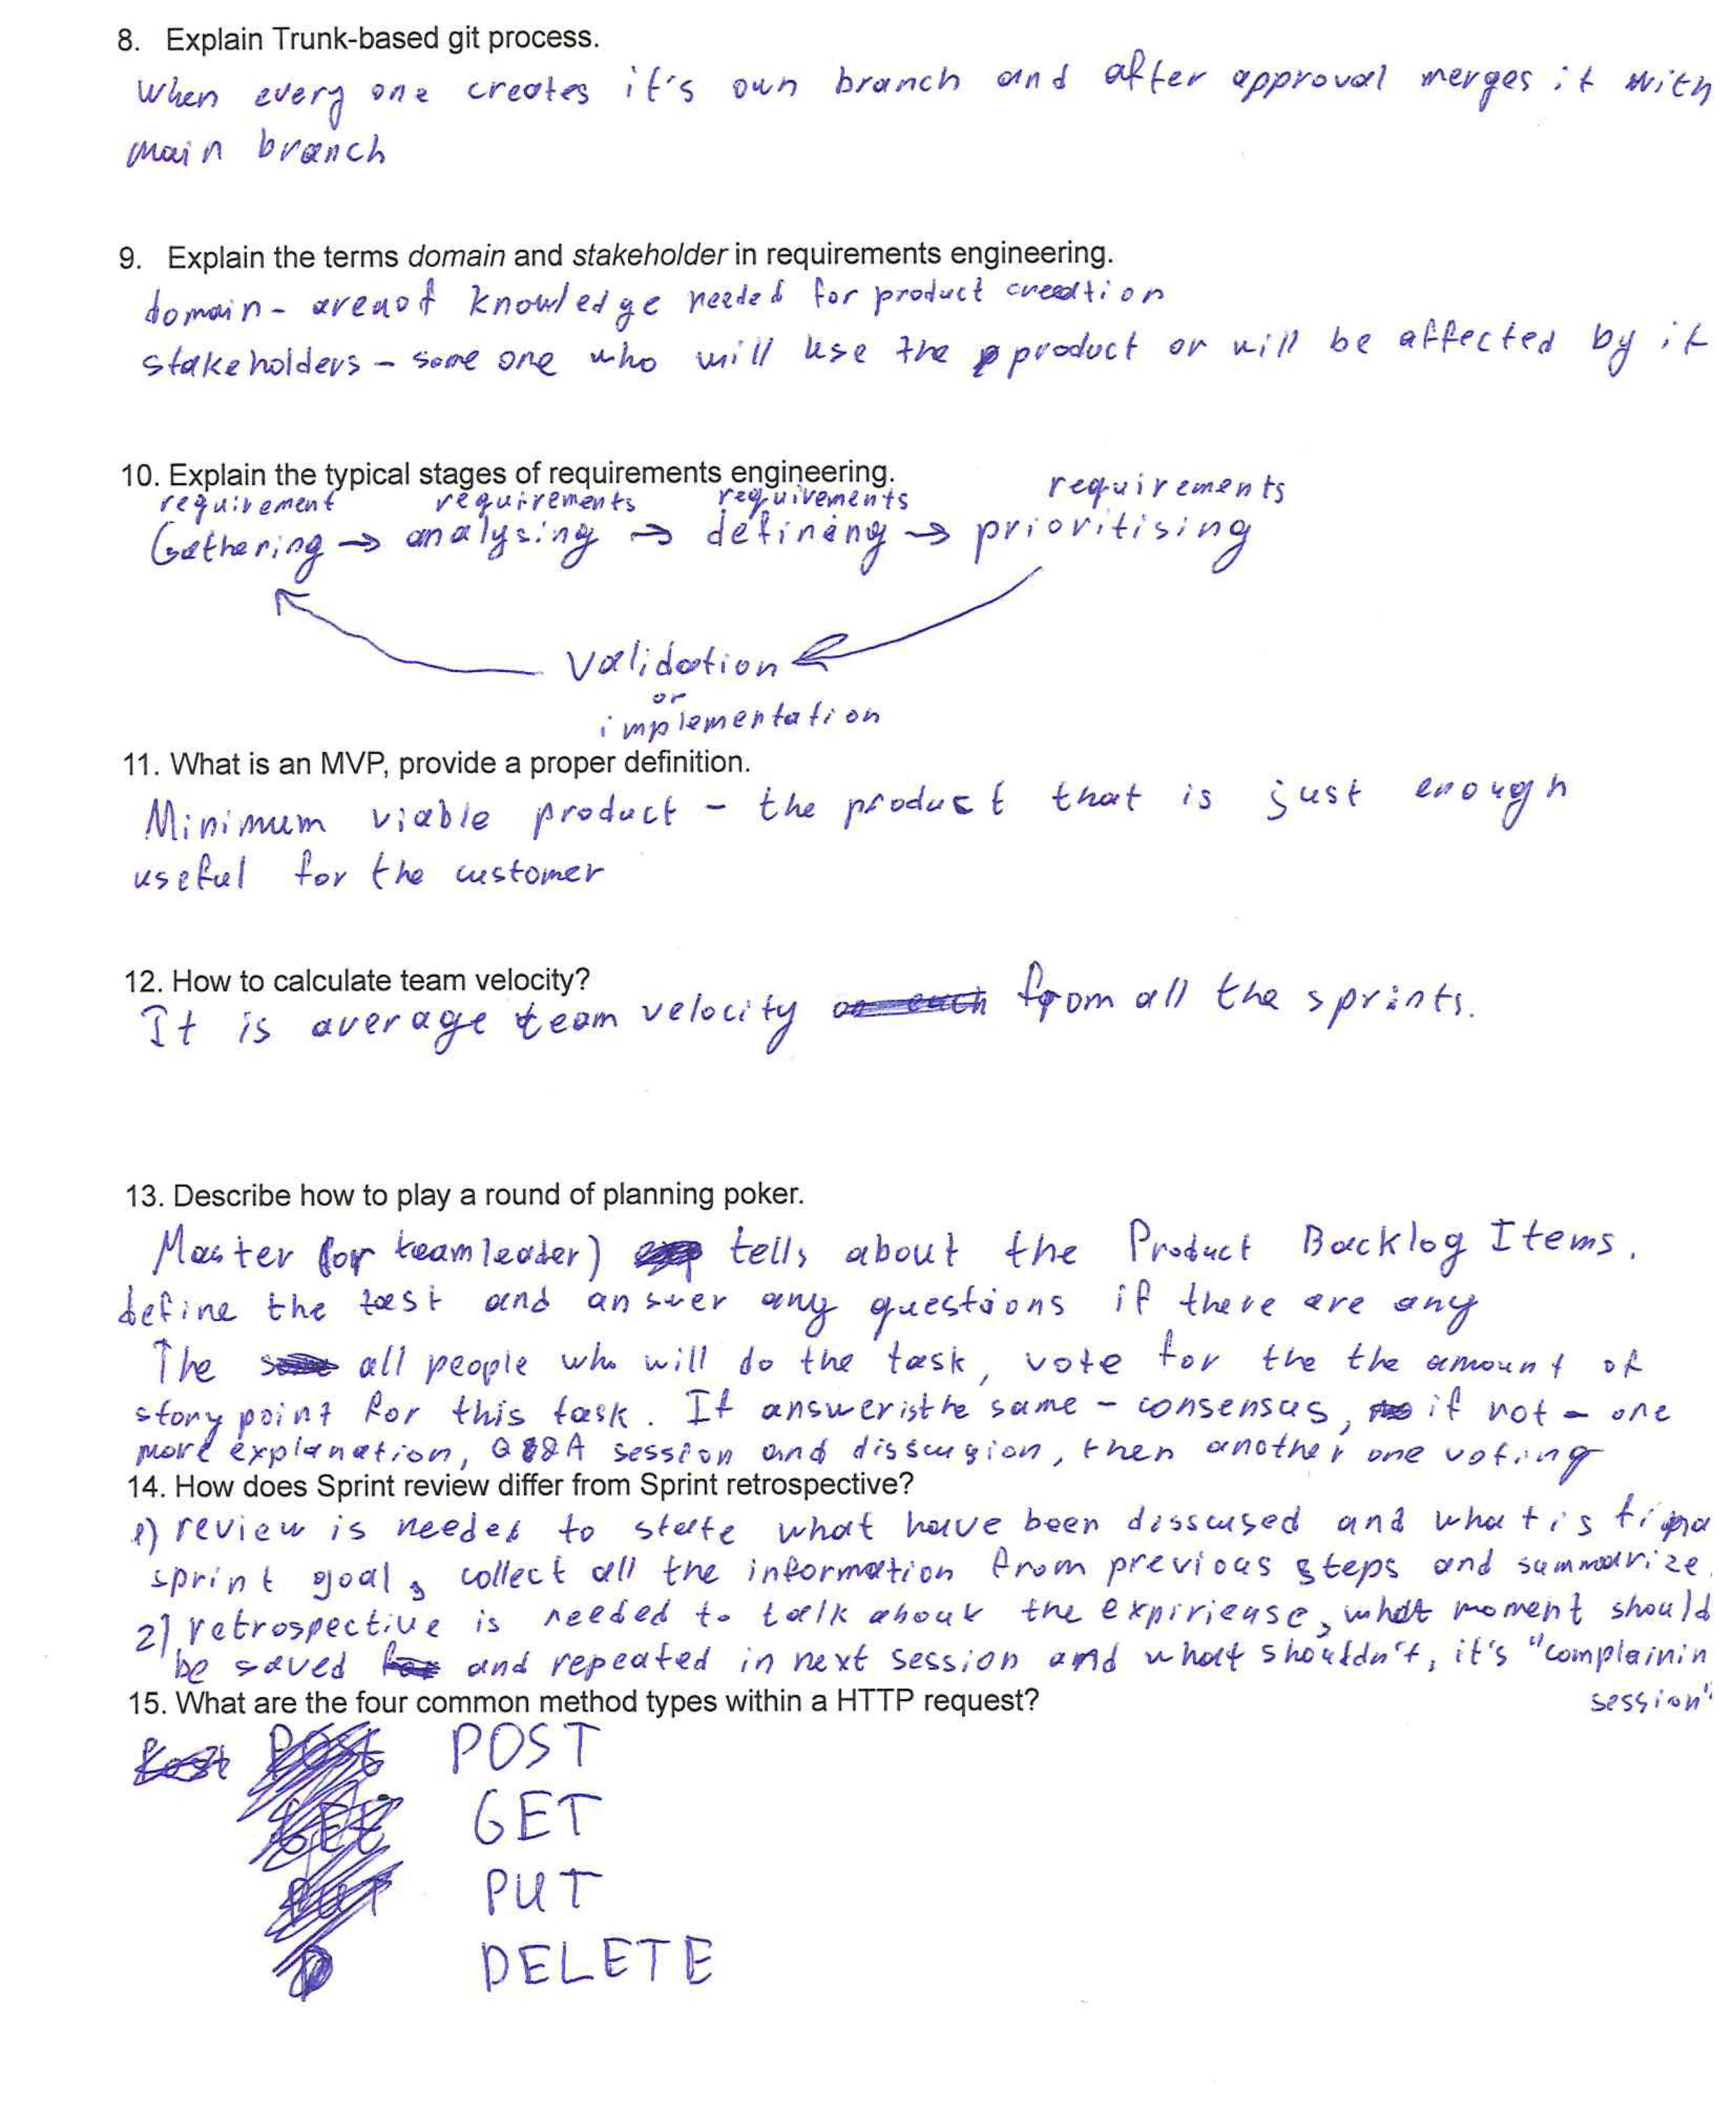 8. Explain Trunk-based git process.
When every one creates it's own branch and after approval merges it with
main branch
9. Explain the terms domain and stakeholder in requirements engineering.
domain - area of knowledge needed for product creation
stakeholders - some one who will use the product or will be affected by it
10. Explain the typical stages of requirements engineering.
requirement requirements requirements requirements
Gathering → analysing → defining → prioritising
Validation
or
implementation
11. What is an MVP, provide a proper definition.
Minimum viable product - the product that is just enough
useful for the customer
12. How to calculate team velocity?
It is average team velocity from all the sprints.
13. Describe how to play a round of planning poker.
Master (or teamleader) tells about the Product Backlog Items.
define the and answer any questions if there are any
The all people who will do the task, vote for the the amount of
story point for this task. If answer is the same - consensus, if not - one
more explanation, Q&A session and disscusion, then another one voting
14. How does Sprint review differ from Sprint retrospective?
1) review is needed to state what have been disscused and what is
sprint goal, collect all the information from previous steps and summarize.
2) retrospective is needed to talk about the expiriense, what moment should
be saved and repeated in next session and what shouldn't, it's "complainin
session"
15. What are the four common method types within a HTTP request?
POST
GET
PUT
DELETE